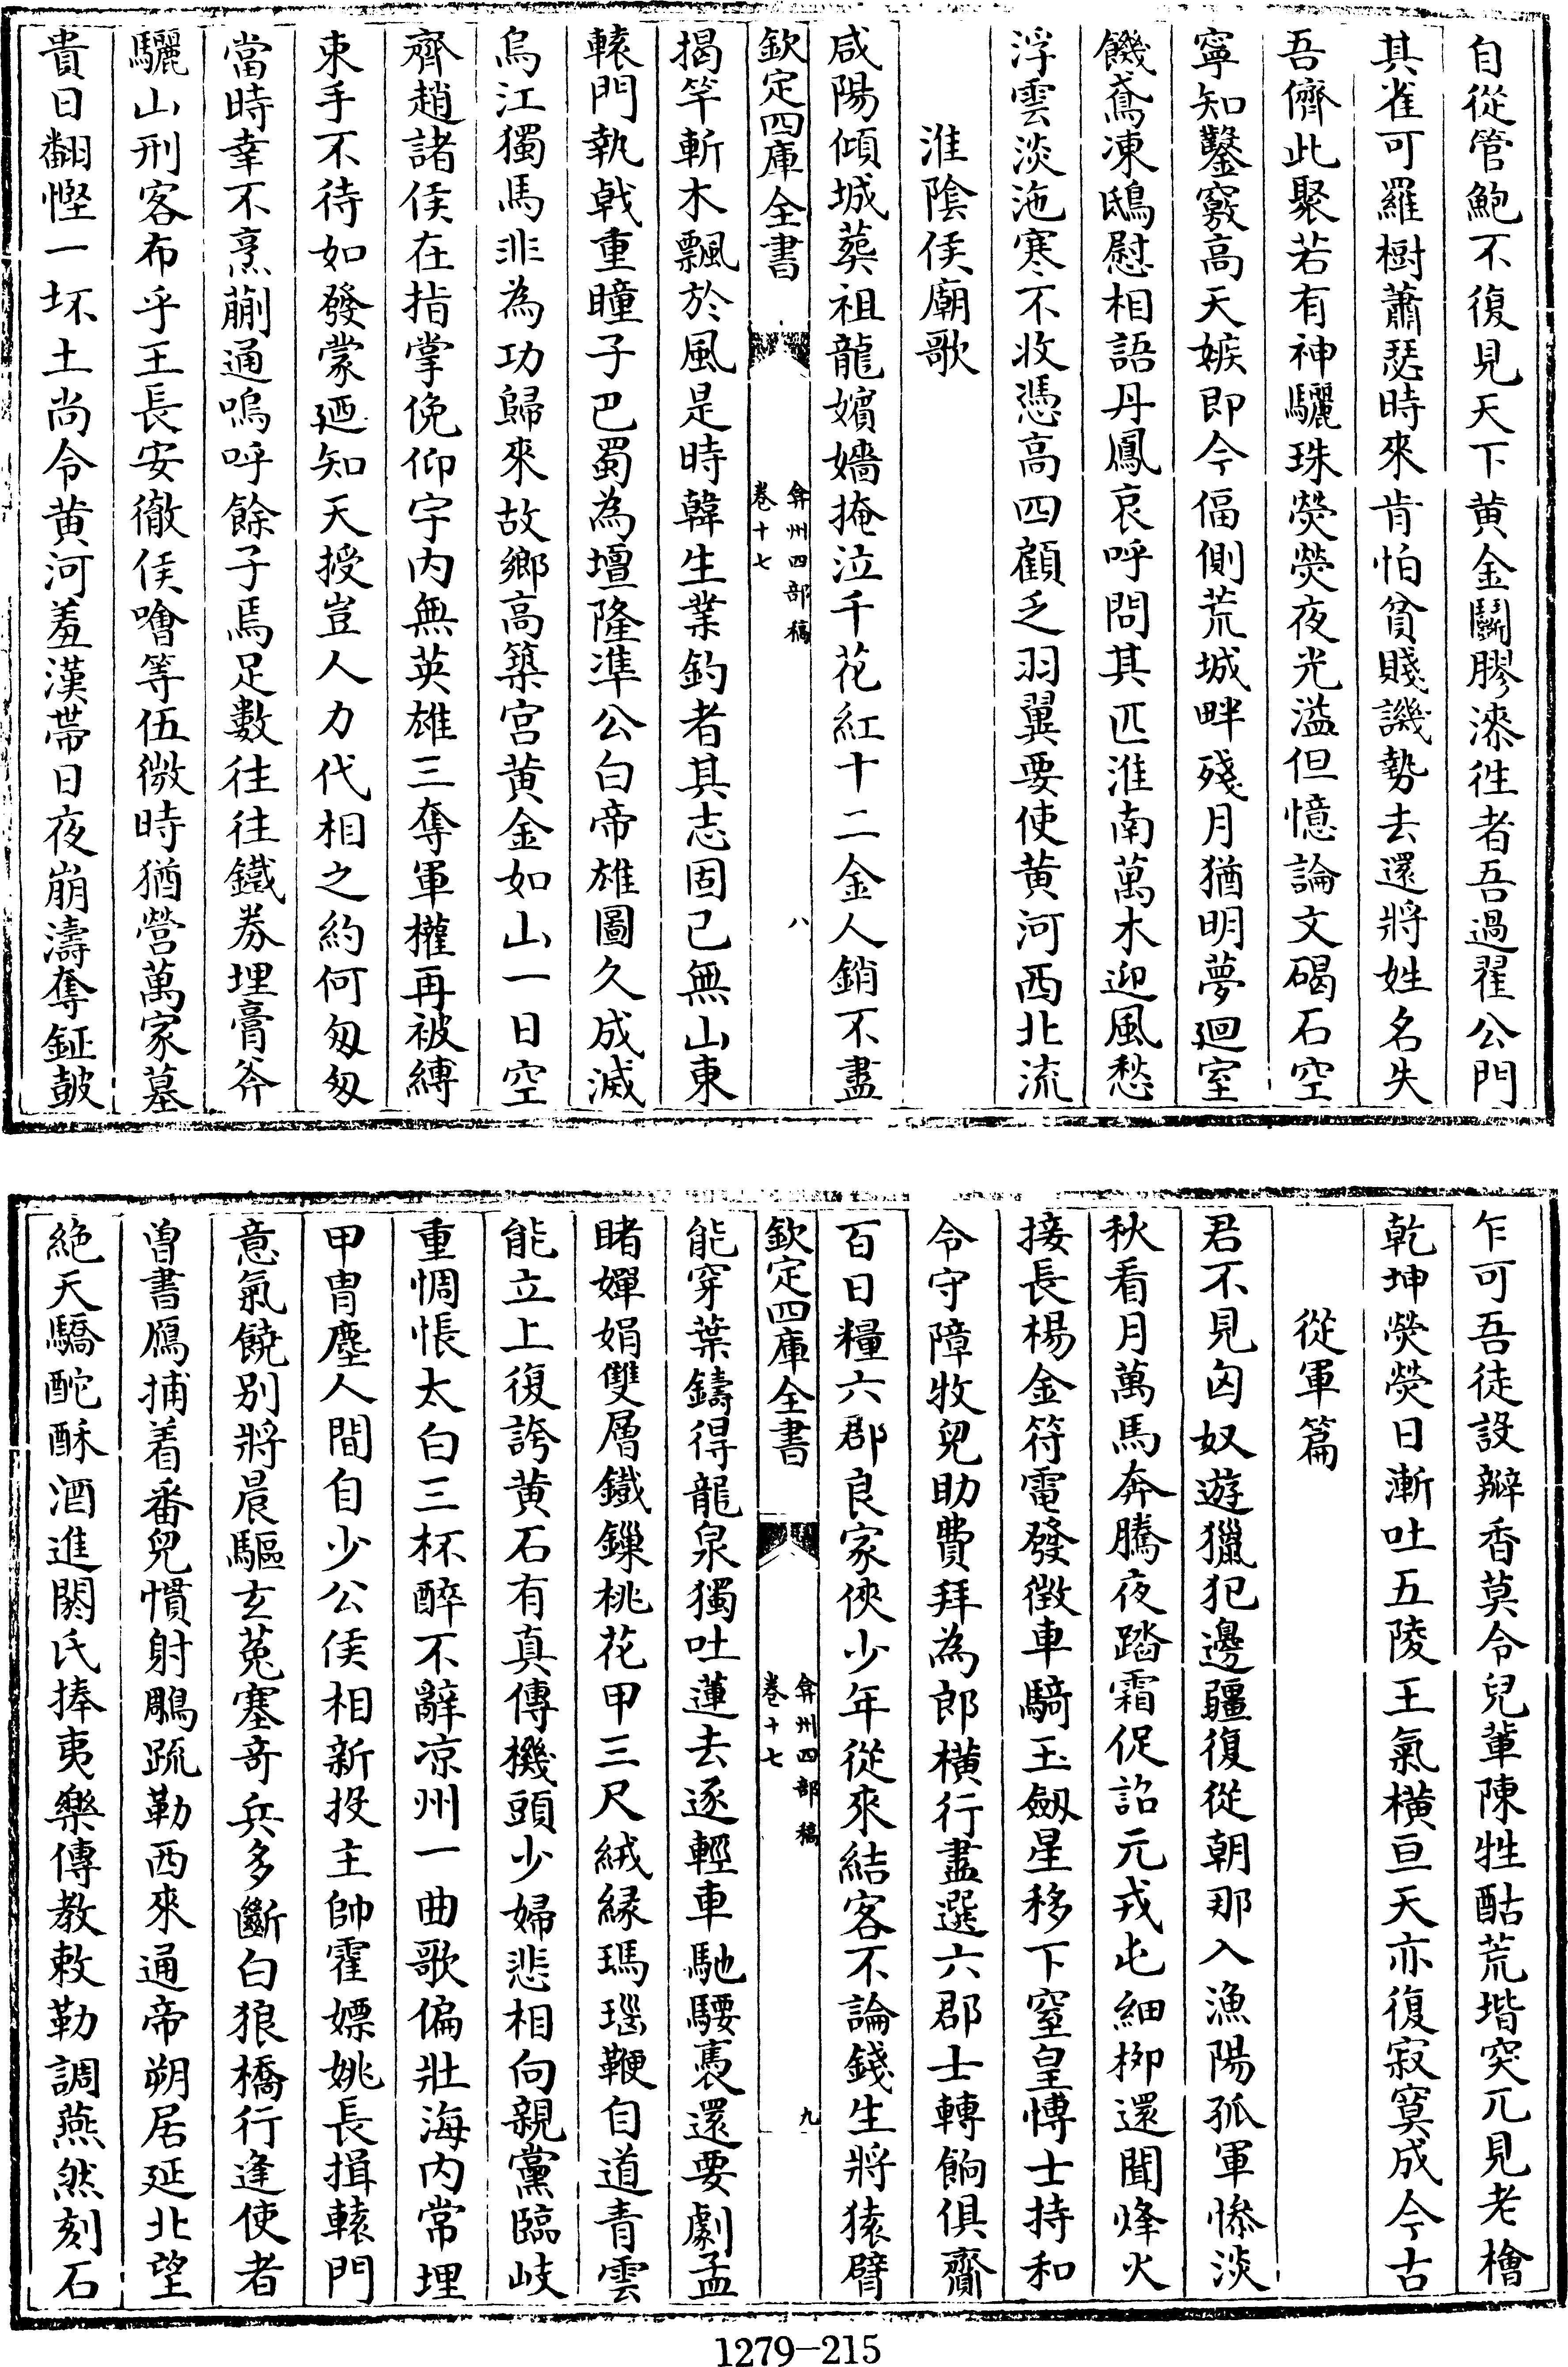 自從管鮑不復見天下黄金鬬膠漆徃者吾過翟公門
其雀可羅樹蕭瑟時來肯怕貧賤譏勢去還將姓名失
吾儕此聚若有神驪珠熒熒夜光溢但憶論文碣石空
寧知鑿竅高天嫉即今偪側荒城畔殘月猶明夢廻室
饑鳶凍鴟慰相語丹鳳哀呼問其匹淮南萬木迎風愁
浮雲淡沲寒不收憑高四顧乏羽翼要使黄河西北流
淮陰侯廟歌
咸陽傾城葬祖龍嬪嬙掩泣千花紅十二金人銷不盡
欽定四庫全書
弇州四部稿
卷十七
八
揭竿斬木飄於風是時韓生業釣者其志固已無山東
轅門執戟重瞳子巴蜀為壇隆準公白帝雄圖久成滅
烏江獨馬非為功歸來故鄉高築宮黄金如山一日空
齊趙諸侯在指掌俛仰宇内無英雄三奪軍權再被縛
束手不待如發蒙廼知天授豈人力代相之約何匆匆
當時幸不烹蒯通嗚呼餘子焉足數往往鐵券埋膏斧
驪山刑客布乎王長安徹侯噲等伍微時猶營萬家墓
貴日翻慳一坏土尚令黄河羞漢帶日夜崩濤奪鉦鼓
乍可吾徒設瓣香莫令兒輩陳牲酤荒堦突兀見老檜
乾坤熒熒日漸吐五陵王氣横亘天亦復寂寞成今古
從軍篇
君不見匈奴遊獵犯邊疆復從朝那入漁陽孤軍慘淡
秋看月萬馬奔騰夜踏霜促詔元戎屯細栁還聞烽火
接長楊金符電發徴車騎玉劔星移下窒皇博士持和
令守障牧兒助費拜為郎橫行盡選六郡士轉餉俱齎
百日糧六郡良家俠少年從來結客不論錢生將猿臂
欽定四庫全書
弇州四部稿
卷十七
九
能穿葉鑄得龍泉獨吐蓮去逐輕車馳騕褭還要劇孟
睹嬋娟雙層鐵鏁桃花甲三尺絨緣瑪瑙鞭自道青雲
能立上復誇黄石有真傳機頭少婦悲相向親黨臨岐
重惆悵太白三杯醉不辭凉州一曲歌偏壯海内常埋
甲胄塵人間自少公侯相新投主帥霍嫖姚長揖轅門
意氣饒别將晨驅玄菟塞奇兵多斷白狼橋行逢使者
曽書鴈捕着番兒慣射鵰疏勒西來通帝朔居延北望
絶天驕酡酥酒進閼氏捧夷樂傳教敕勒調燕然刻石
1279-215